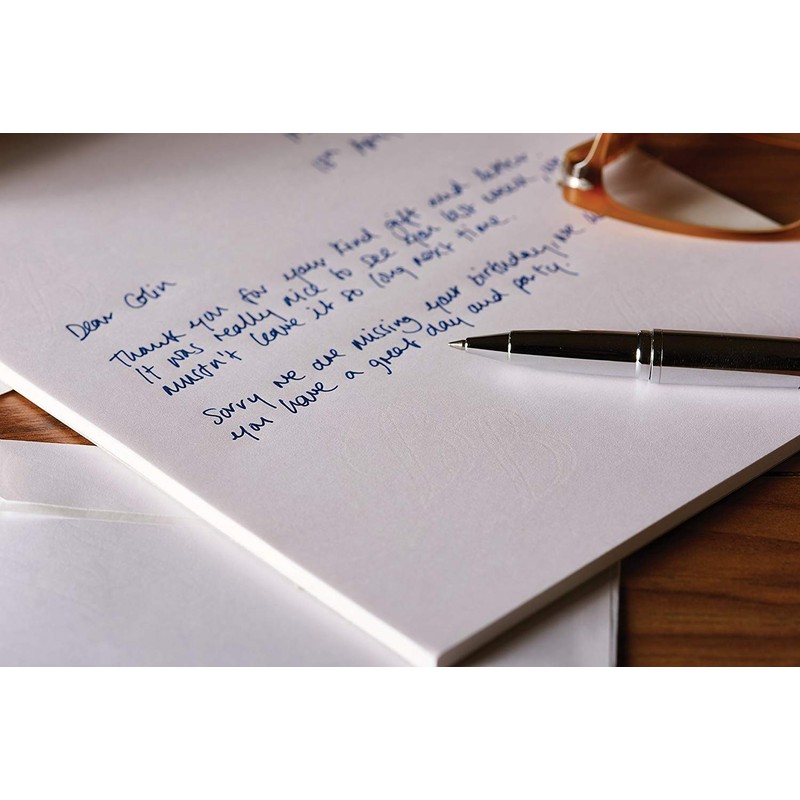 17th April
Dear Colin
Thank you for your kind gift and letter
It was really nice to see you last week, we
mustn't leave it so long next time.
Sorry we are missing your birthday, we
you have a great day and party.